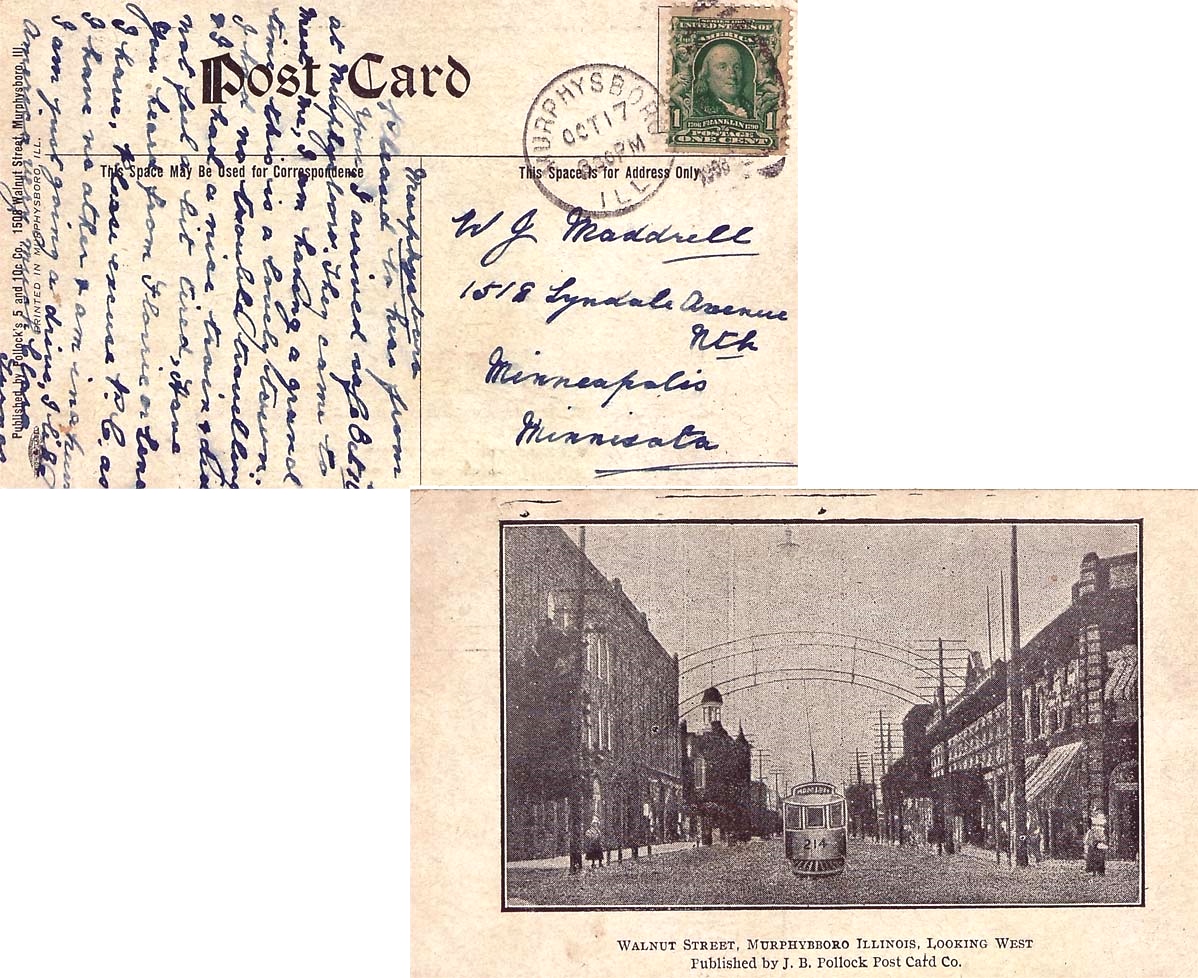 Post Card
This Space May Be Used for Correspondence
This Space Is for Address Only
SERIES 1902
UNITED STATES OF
AMERICA
1 1706 FRANKLIN 1790 1
POSTAGE
ONE CENT
MURPHYSBORO
OCT 17
830PM
ILL
W J Maddrell
1518 Lyndale Avenue
Nth
Minneapolis
Minnisota
Murphysboro
Pleased to hear from
you, I arrived safe
at Murphysboro. They came to
meet me, I am having a grand
time this is a lovely town.
I had no trouble travelling
& I had a nice train & did
not feel a bit tired, Have
you heard from Florrie or Lena
I have, Please excuse P.C. as
I have no other & am in a hurry
I am just going a drive, I like
America
Published by Pollock's 5 and 10c Co., 1508 Walnut Street, Murphysboro, Ill.
PRINTED IN MURPHYSBORO, ILL.
214
WALNUT STREET, MURPHYBBORO ILLINOIS, LOOKING WEST
Published by J. B. Pollock Post Card Co.